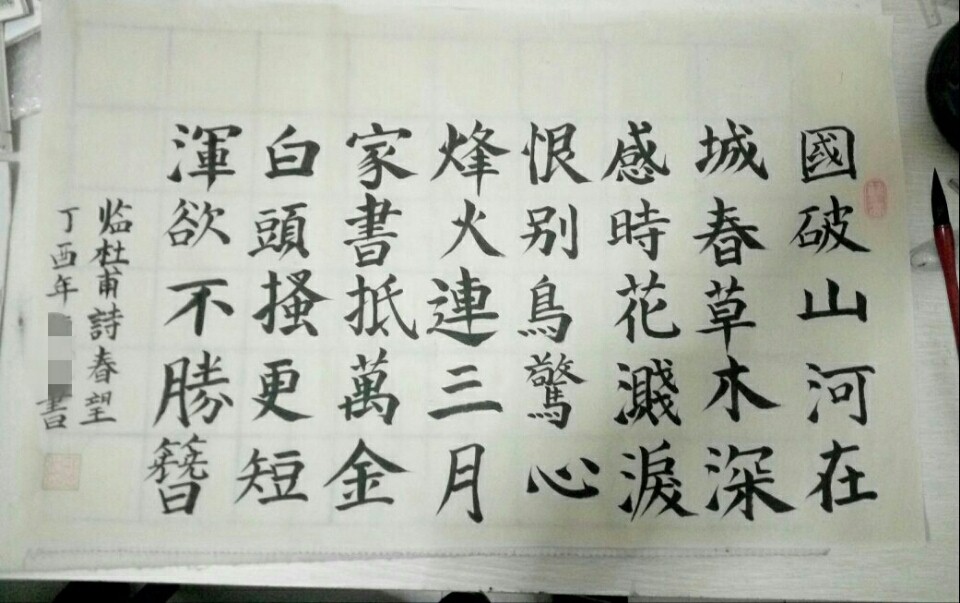 國破山河在
城春草木深
感時花濺淚
恨别鳥驚心
烽火連三月
家書抵萬金
白頭搔更短
渾欲不勝簪
临杜甫詩春望
丁酉年
書